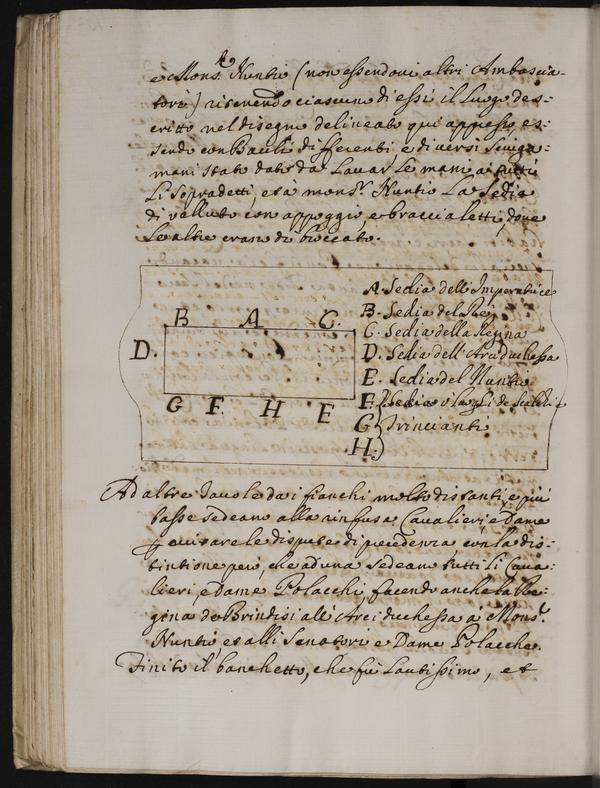 e Mons.r Nuntio (non essendoui altri Ambascia-
tori) riceuendo ciascuno di essi il Luogo des-
critto nel disegno delineato qui appresso, es-
sendo con Bacili differenti, e diuersi Sciuga-
mani stato dato da Lauar le mani a' tutti
li sopradetti, et à mons.r Nuntio La Sedia
di velluto con appoggio, e braccialetti, doue
le altre erano di broccato.
A. Sedia dell'Imperatrice
B. Sedia del Rè
C. Sedia della Regina
D. Sedia dell'Arciduchessa
E. Sedia del Nuntio
F. Sedia o luoghi de
G. Trincianti
H.
B A C.
D.
G F. H E
Ad altre Tauole da i fianchi molto distanti, e più
basse sedeano alla rinfusa Caualieri, e Dame
p euitare le dispute di precedenza con la dis-
tintione però, che ad una sedeano tutti li Caua-
lieri, e Dame Polacchi, facendo anche la Re-
gina de Brindisi all'Arciduchessa à Mons.r
Nuntio et alli Senatori e Dame Polacche.
Finito il banchetto, che fù Lautissimo, et